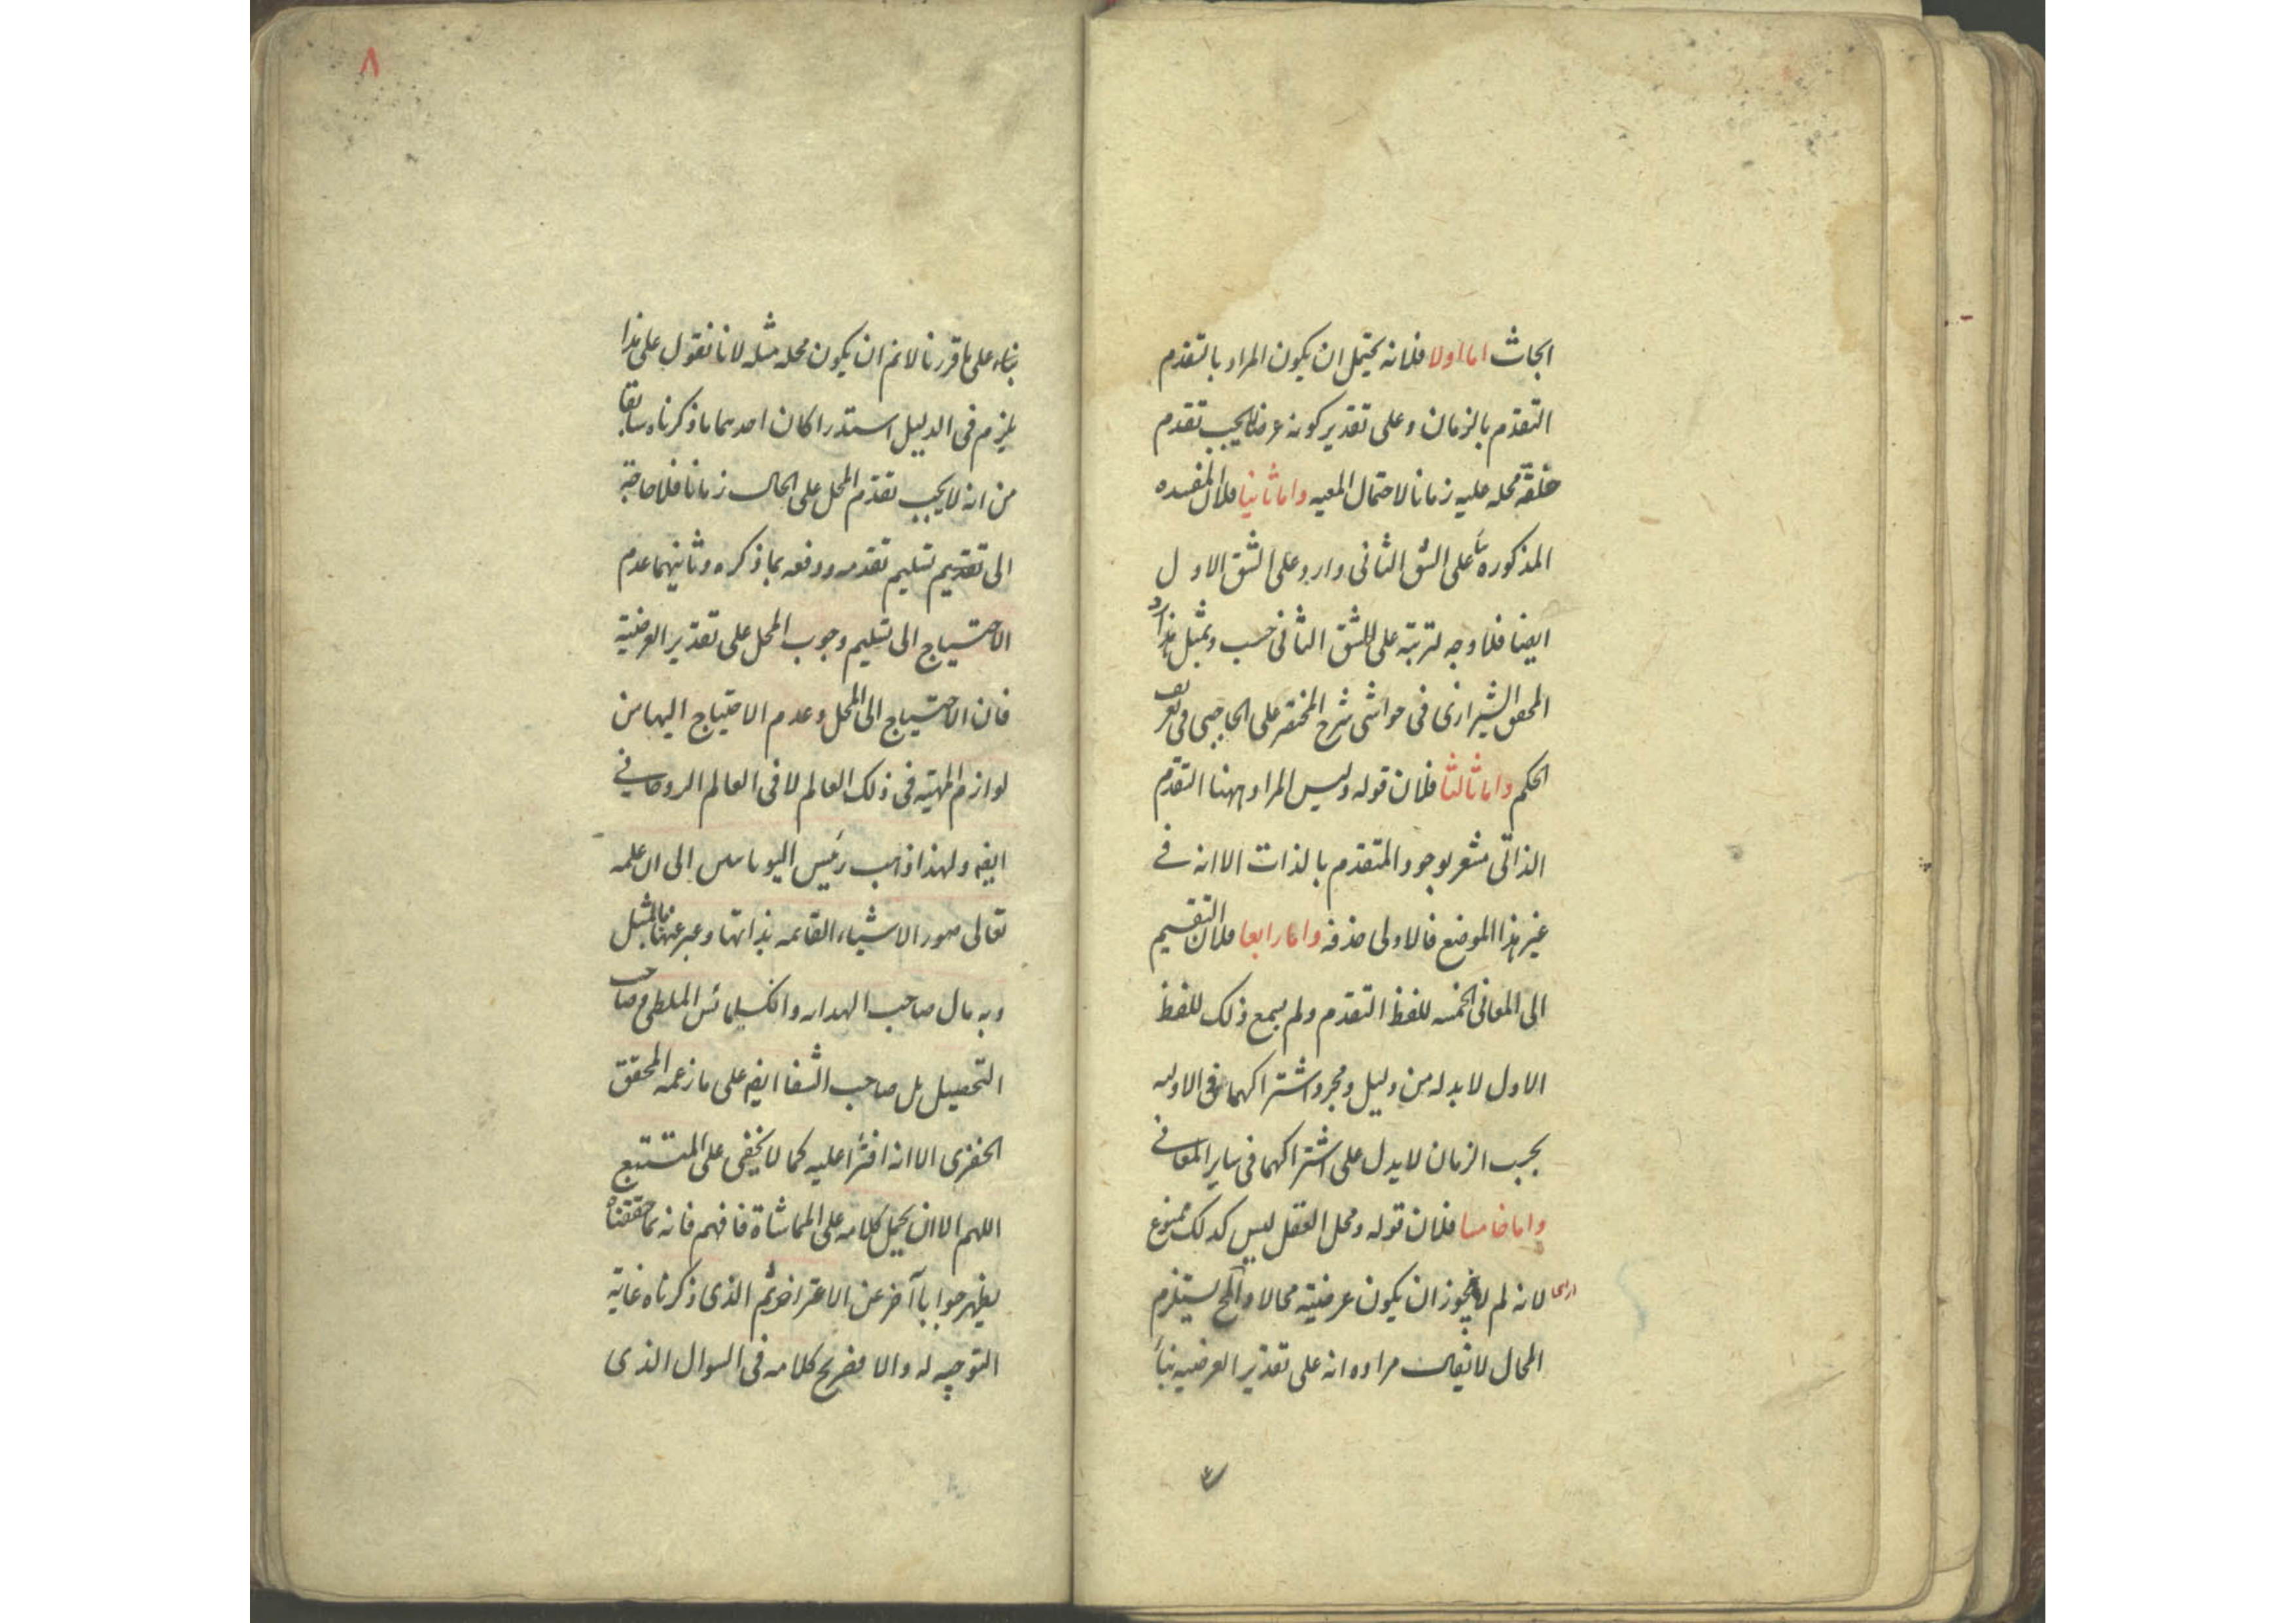 ابحاث اما اولا فلانه يحتمل ان يكون المراد بالتقدم
التقدم بالزمان وعلى تقدير كونه عرضا لا يجب تقدم
محله عليه زمانا لاحتمال المعيه واما ثانيا فلان المفسده
المذكورة على الشق الثانى وارد على الشق الاول
ايضا فلا وجه لترتبه على الشق الثانى حسب وبمثل هذا
المحقق الشيرازى فى حواشى شرح المختصر على الحاجبى فى تعريف
الحكم واما ثالثا فلان قوله وليس المراد ههنا التقدم
الذاتى مشعر بوجود المتقدم بالذات الا انه فى
غير هذا الموضع فالاولى حذفه واما رابعا فلان التقسيم
الى المعانى الخمسه للفظ التقدم ولم يسمع ذلك للفظ
الاول لا بد له من دليل ومجرد اشتراكهما فى الاوليه
بحسب الزمان لا يدل على اشتراكهما فى ساير المعانى
واما خامسا فلان قوله ومحل العقل ليس كذلك ممنوع
لانه لم لا يجوز ان يكون عرضيته محالا والمح يستلزم
المحال لا يقال مراده انه على تقدير العرضيه بناء
٨
بناء على ما قررنا لا نم ان يكون محله مثله لانا نقول على هذا
يلزم فى الدليل استدراكان احدهما ما ذكرناه سابقا
من انه لا يجب تقدم المحل على الحال زمانا فلا حاجة
الى تقديم تسليم تقدمه ودفعه بما ذكره وثانيهما عدم
الاحتياج الى تسليم وجوب المحل على تقدير العرضية
فان الاحتياج الى المحل وعدم الاحتياج اليها من
لوازم المهية فى ذلك العالم لا فى العالم الروحانى
ايضه ولهذا ذهب رئيس اليونانيين الى ان علمه
تعالى صور الاشياء القائمه بذاتها وعبر عنها بالمثل
وبه مال صاحب الهدايه وانكسيمائس الملطى وصاحب
التحصيل بل صاحب الشفا ايضه على ما زعمه المحقق
الخفرى الا انه افترا عليه كما لا يخفى على المتتبع
اللهم الا ان يحمل كلامه على المماشاة فافهم فانه بما حققناه
يظهر جوابا آخر عن الاعتراض ثم الذى ذكرناه غاية
التوجيه له والا فصريح كلامه فى السوال الذى